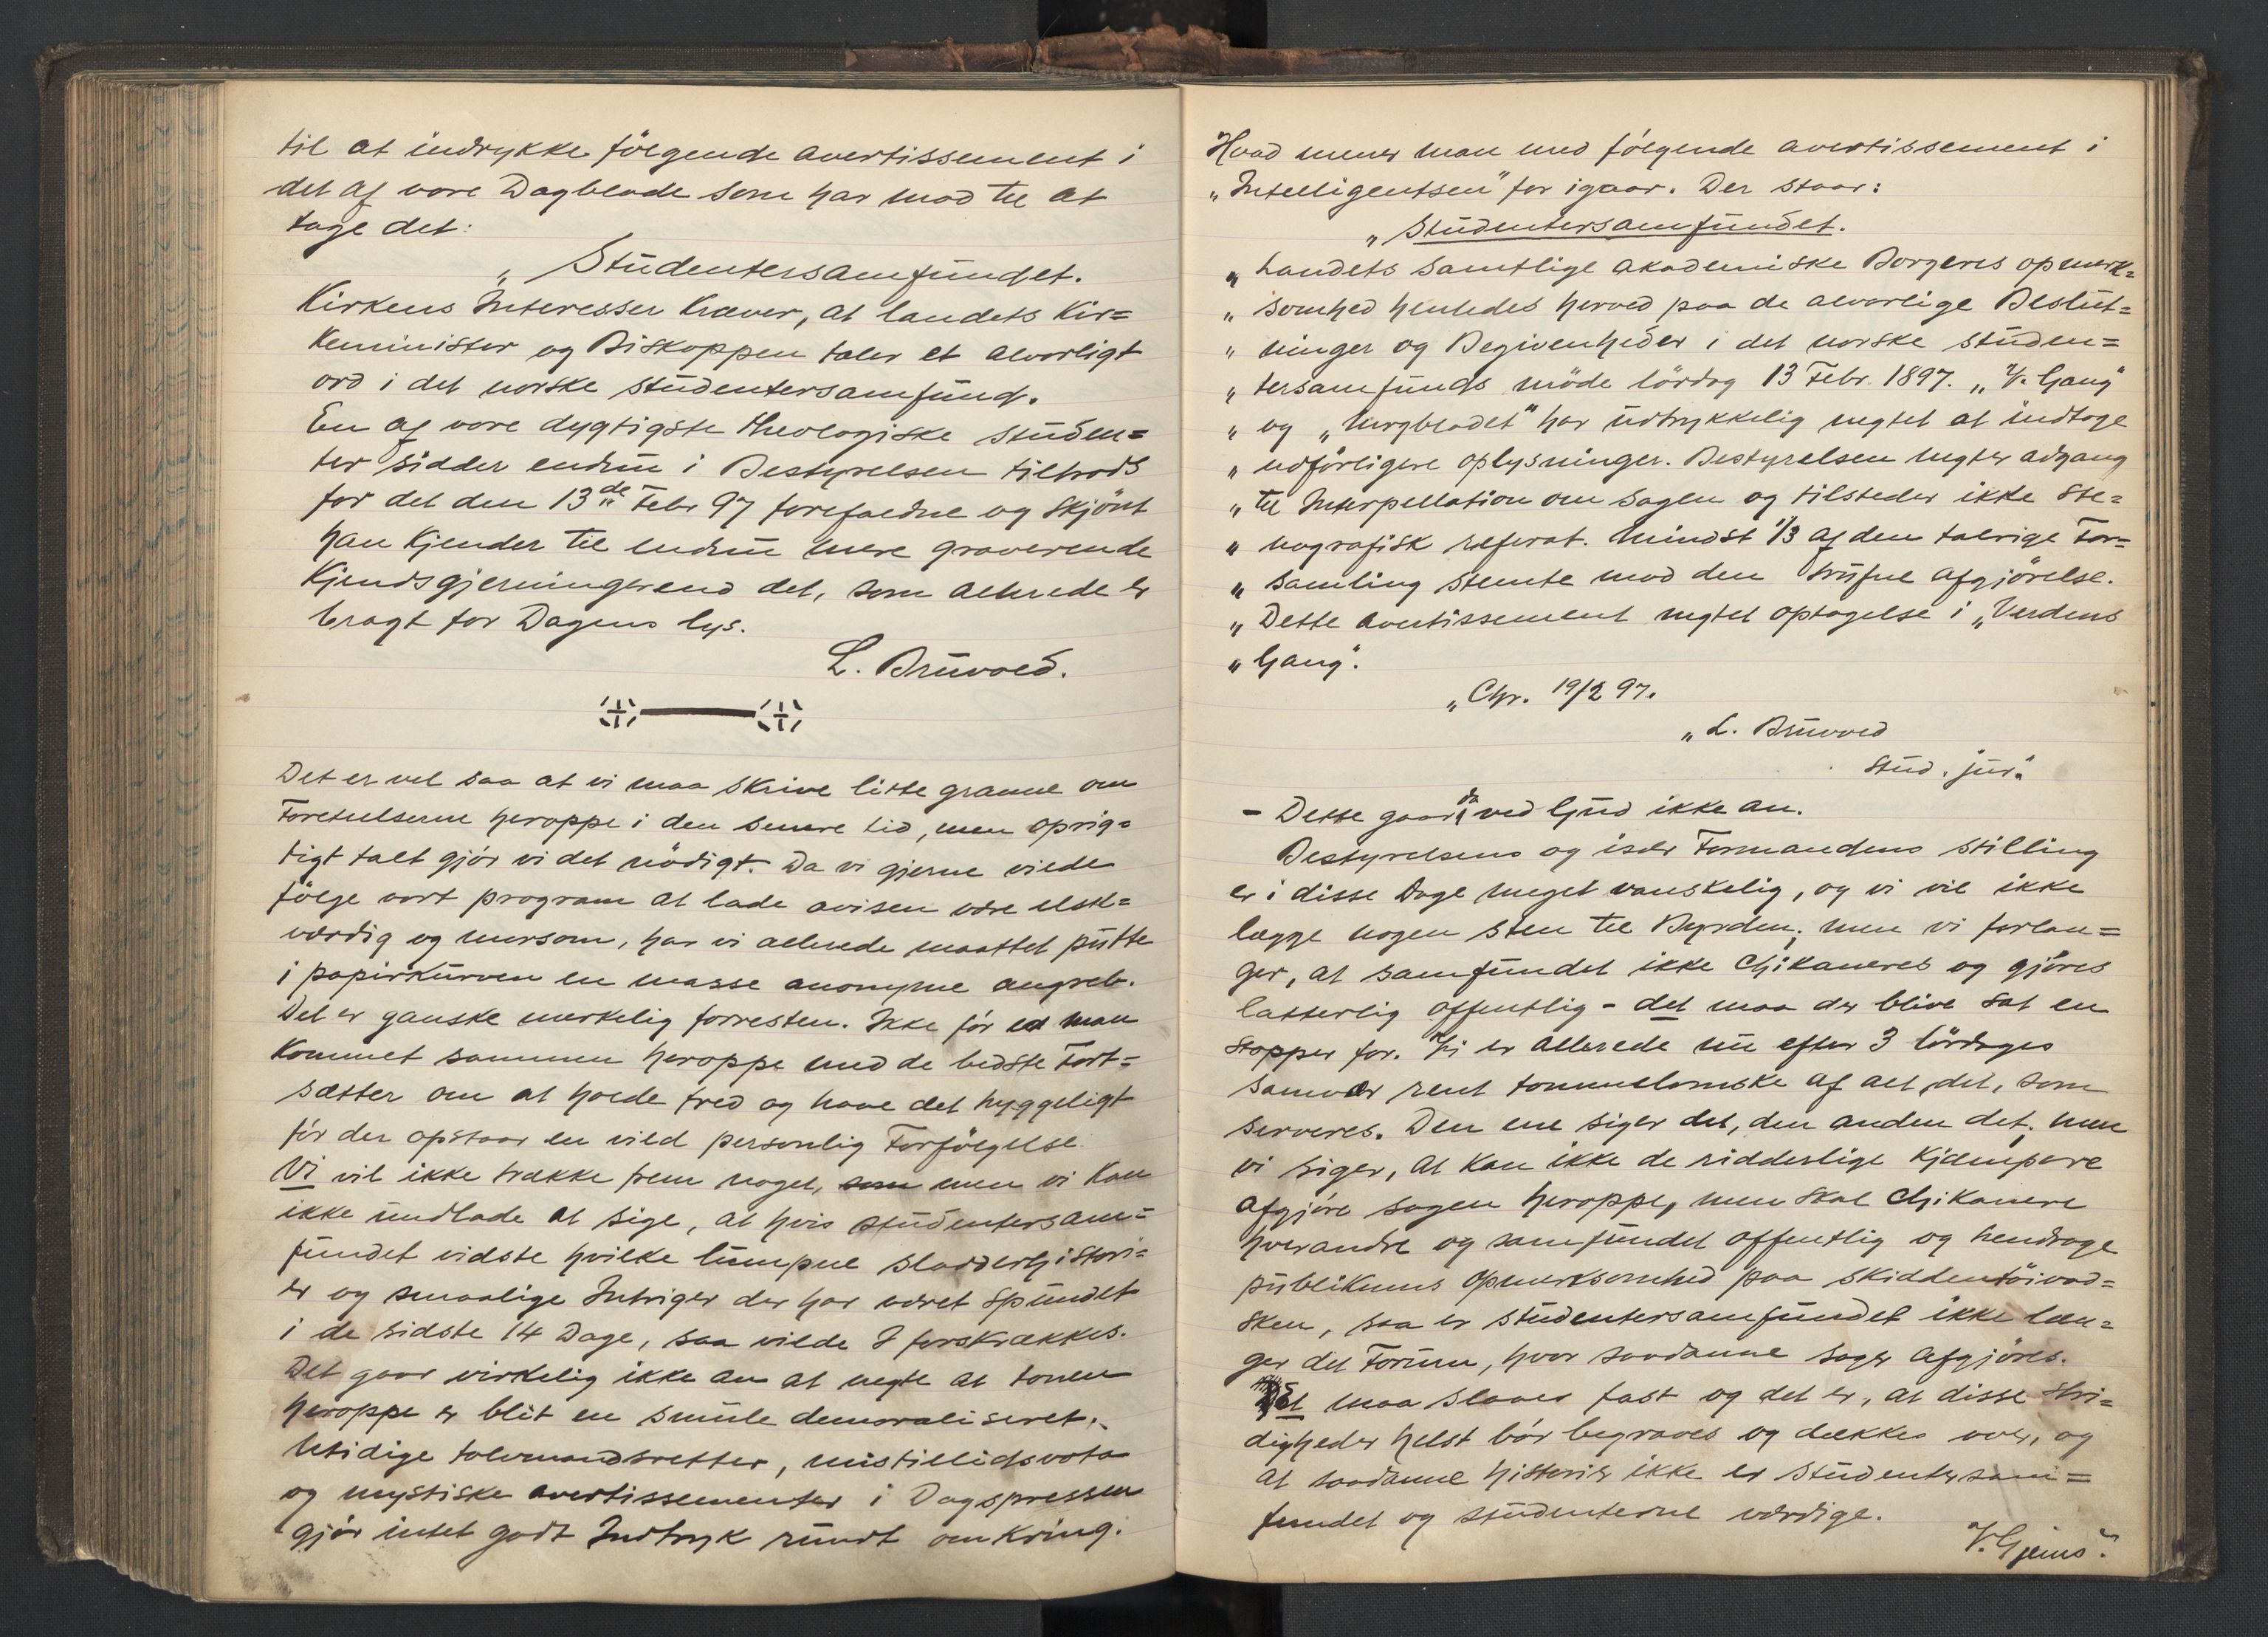 til at indrykke følgende avertissement i
det af vore Dagblade som har mod til at
tage det:
„Studentersamfundet.
Kirkens Interesser kræver, at landets Kir=
keminister og Biskoppen taler et alvorligt
ord i det norske studentersamfund.
En af vore dygtigste theologiske studen=
ter sidder endnu i Bestyrelsen tiltrods
for det den 13de Febr 97 forefaldne og skjönt
han kjender til endnu mere graverende
Kjendsgjerninger end det, som allerede er
bragt for Dagens lys.
L. Bruvold.
Det er vel saa at vi maa skrive litte granne om
Foreteelserne heroppe i den senere tid, men oprig=
tigt talt gjör vi det nödigt. Da vi gjerne vilde
fölge vort program at lade avisen være elsk=
værdig og morsom, har vi allerede maattet putte
i papirkurven en masse anonyme angreb.
Det er ganske merkelig forresten. Ikke för er man
kommet sammen heroppe med de bedste Fort=
sætter om at holde fred og have det hyggeligt
för der opstaar en vild personlig Forfölgelse.
Vi vil ikke trække frem noget, som men vi kan
ikke undlade at sige, at hvis studentersam=
fundet vidste hvilke lumpne sladderhistori=
er og smaalige Intriger der har været spundet
i de sidste 14 Dage, saa vilde I forskrækkes.
Det gaar virkelig ikke an at negte at tonen
heroppe er blit en smule demoraliseret.
Utidige tolvmandsretter, mistillidsvota
og mystiske avertissementer i Dagspressen
gjör intet godt Indtryk rundt omkring.
Hvad mener man med følgende avertissement i
„Intelligentsen" for igaar. Der staar:
„Studentersamfundet.
„Landets samtlige akademiske Borgeres opmerk=
„somhed henledes herved paa de alvorlige Beslut=
„ninger og Begivenheder i det norske studen=
„tersamfunds möde lördag 13 Febr. 1897. „V. Gang"
„og „Morgbladet" har udtrykkelig negtet at indtage
„udförligere oplysninger. Bestyrelsen negter adgang
„til Interpellation om sagen og tilsteder ikke ste=
„nografisk referat. Mindst 1/3 af den talrige For=
„samling stemte mod den trufne afgjörelse.
„Dette avertissement negtet optagelse i „Verdens
„Gang".
„Chr. 19/2 97.
„L. Bruvold
stud. jur."
- Dette gaar da ved Gud ikke an.
Bestyrelsens og især Formandens stilling
er i disse Dage meget vanskelig, og vi vil ikke
lægge nogen sten til Byrden; men vi forlan=
ger, at samfundet ikke chikaneres og gjöres
latterlig offentlig - det maa der blive sat en
stopper for. Vi er allerede nu efter 3 lördages
samvær rent tommelomske af alt det, som
serveres. Den ene siger det, den anden det; men
vi siger, at kan ikke de ridderlige kjæmpere
afgjöre sagen heroppe, men skal chikanere
hverandre og samfundet offentlig og hendrage
publikums opmerksomhed paa skiddentöivad=
sken, saa er studentersamfundet ikke læn=
ger det Forum, hvor saadanne sager afgjöres.
Det maa slaaes fast og det er, at disse stri=
digheder helst bör begraves og dækkes over, og
at saadanne historier ikke er studentersam=
fundet og studenterne værdige.
V. Gjems".